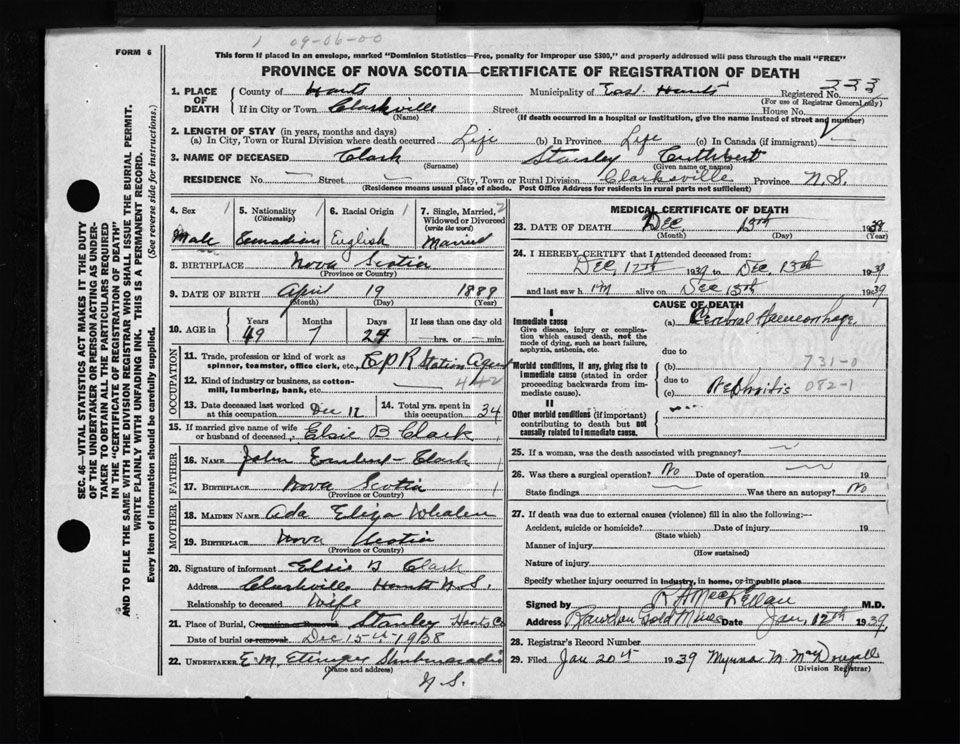 1 09-06-00
FORM 6
This form if placed in an envelope, marked "Dominion Statistics—Free, penalty for improper use $300," and properly addressed will pass through the mail "FREE"
PROVINCE OF NOVA SCOTIA—CERTIFICATE OF REGISTRATION OF DEATH
SEC. 46—VITAL STATISTICS ACT MAKES IT THE DUTY
OF THE UNDERTAKER OR PERSON ACTING AS UNDER-
TAKER TO OBTAIN ALL THE PARTICULARS REQUIRED
IN THE "CERTIFICATE OF REGISTRATION OF DEATH"
AND TO FILE THE SAME WITH THE DIVISION REGISTRAR WHO SHALL ISSUE THE BURIAL PERMIT.
WRITE PLAINLY WITH UNFADING INK. THIS IS A PERMANENT RECORD.
Every item of information should be carefully supplied. (See reverse side for instructions.)
1. PLACE OF DEATH County of Hants Municipality of East Hants Registered No. 333
(For use of Registrar General only)
If in City or Town Clarkville Street House No.
(Name) (If death occurred in a hospital or institution, give the name instead of street and number)
2. LENGTH OF STAY (in years, months and days)
(a) In City, Town or Rural Division where death occurred Life (b) In Province Life (c) In Canada (if immigrant) —
3. NAME OF DECEASED Clark Stanley Cuthbert
(Surname) (Given name or names)
RESIDENCE No. — Street — City, Town or Rural Division Clarksville Province N.S.
(Residence means usual place of abode. Post Office Address for residents in rural parts not sufficient)
4. Sex 1 5. Nationality 1 6. Racial Origin 1 7. Single, Married, 2
(Citizenship) Widowed or Divorced
(write the word)
Male Canadian English Married
8. BIRTHPLACE Nova Scotia
(Province or Country)
9. DATE OF BIRTH April 19 1889
(Month) (Day) (Year)
10. AGE in Years Months Days If less than one day old
49 7 24 hrs. or min.
OCCUPATION
11. Trade, profession or kind of work as
spinner, teamster, office clerk, etc. C.P.R Station Agent
12. Kind of industry or business, as cotton-
mill, lumbering, bank, etc. 442
13. Date deceased last worked at this occupation Dec 12 14. Total yrs. spent in this occupation 34
15. If married give name of wife
or husband of deceased Elsie B Clark
FATHER
16. NAME John Clark
17. BIRTHPLACE Nova Scotia
(Province or Country)
MOTHER
18. MAIDEN NAME Ada Eliza Whalen
19. BIRTHPLACE Nova Scotia
(Province or Country)
20. Signature of informant Elsie B Clark
Address Clarkville Hants N.S.
Relationship to deceased Wife
21. Place of Burial, Cremation or removal Stanley Hants Co
Date of burial or removal Dec 15th 1938
22. UNDERTAKER E.M. Ettinger Shubenacadie
(Name and address)
N.S.
MEDICAL CERTIFICATE OF DEATH
23. DATE OF DEATH Dec. 13th 1938
(Month) (Day) (Year)
24. I HEREBY CERTIFY that I attended deceased from:
Dec, 12th 1939 to Dec 13th 1939
and last saw him alive on Dec 13th 1939
CAUSE OF DEATH
I
Immediate cause
Give disease, injury or complica-
tion which caused death, not the
mode of dying, such as heart failure,
asphyxia, asthenia, etc.
(a) Cerebral Haemorrhage
due to
Morbid conditions, if any, giving rise to
immediate cause (stated in order
proceeding backwards from im-
mediate cause)
(b) 731-0
due to
(c) Nephritis 082-1
II
Other morbid conditions (if important)
contributing to death but not
causally related to immediate cause.
25. If a woman, was the death associated with pregnancy?
26. Was there a surgical operation? No Date of operation 19
State findings Was there an autopsy? No
27. If death was due to external causes (violence) fill in also the following:—
Accident, suicide or homicide? Date of injury 19
(State which)
Manner of injury
(How sustained)
Nature of injury
Specify whether injury occurred in industry, in home, or in public place
Signed by R A MacLellan M.D.
Address Rawdon Gold Mines Date Jan, 12th 1939
28. Registrar's Record Number
29. Filed Jan 20th 1939 Mynna M. McDougall
(Division Registrar)